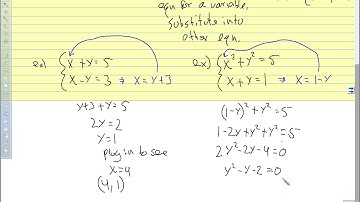 eqn for a variable,
substitute into
other eqn.
ex) { x + y = 5
x - y = 3 → x = y+3
y+3 + y = 5
2y = 2
y = 1
plug in to see
x = 4
(4, 1)
ex) { x² + y² = 5
x + y = 1 → x = 1-y
(1-y)² + y² = 5
1 - 2y + y² + y² = 5
2y² - 2y - 4 = 0
y² - y - 2 = 0